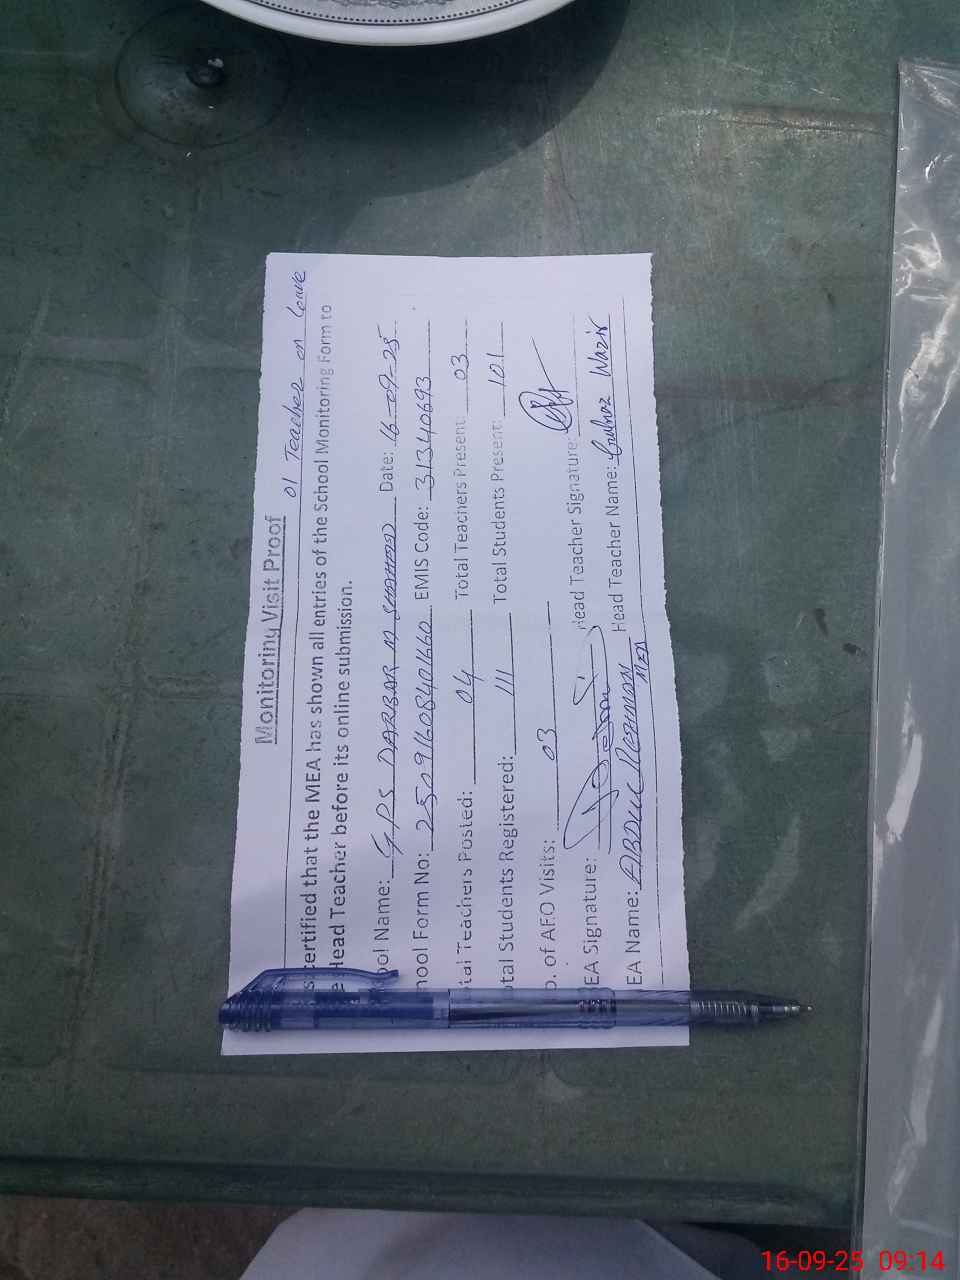 Monitoring Visit Proof
01 Teacher on leave
certified that the MEA has shown all entries of the School Monitoring Form to
Head Teacher before its online submission.
ool Name: GPS DARBAR M Date: 16-09-25
hool Form No: EMIS Code: 31340693
tal Teachers Posted: 04 Total Teachers Present: 03
tal Students Registered: 111 Total Students Present: 101
o. of AEO Visits: 03
EA Signature: Head Teacher Signature:
EA Name: ABDUL REHMAN Head Teacher Name: Gulnaz Wazir
MEA
16-09-25 09:14